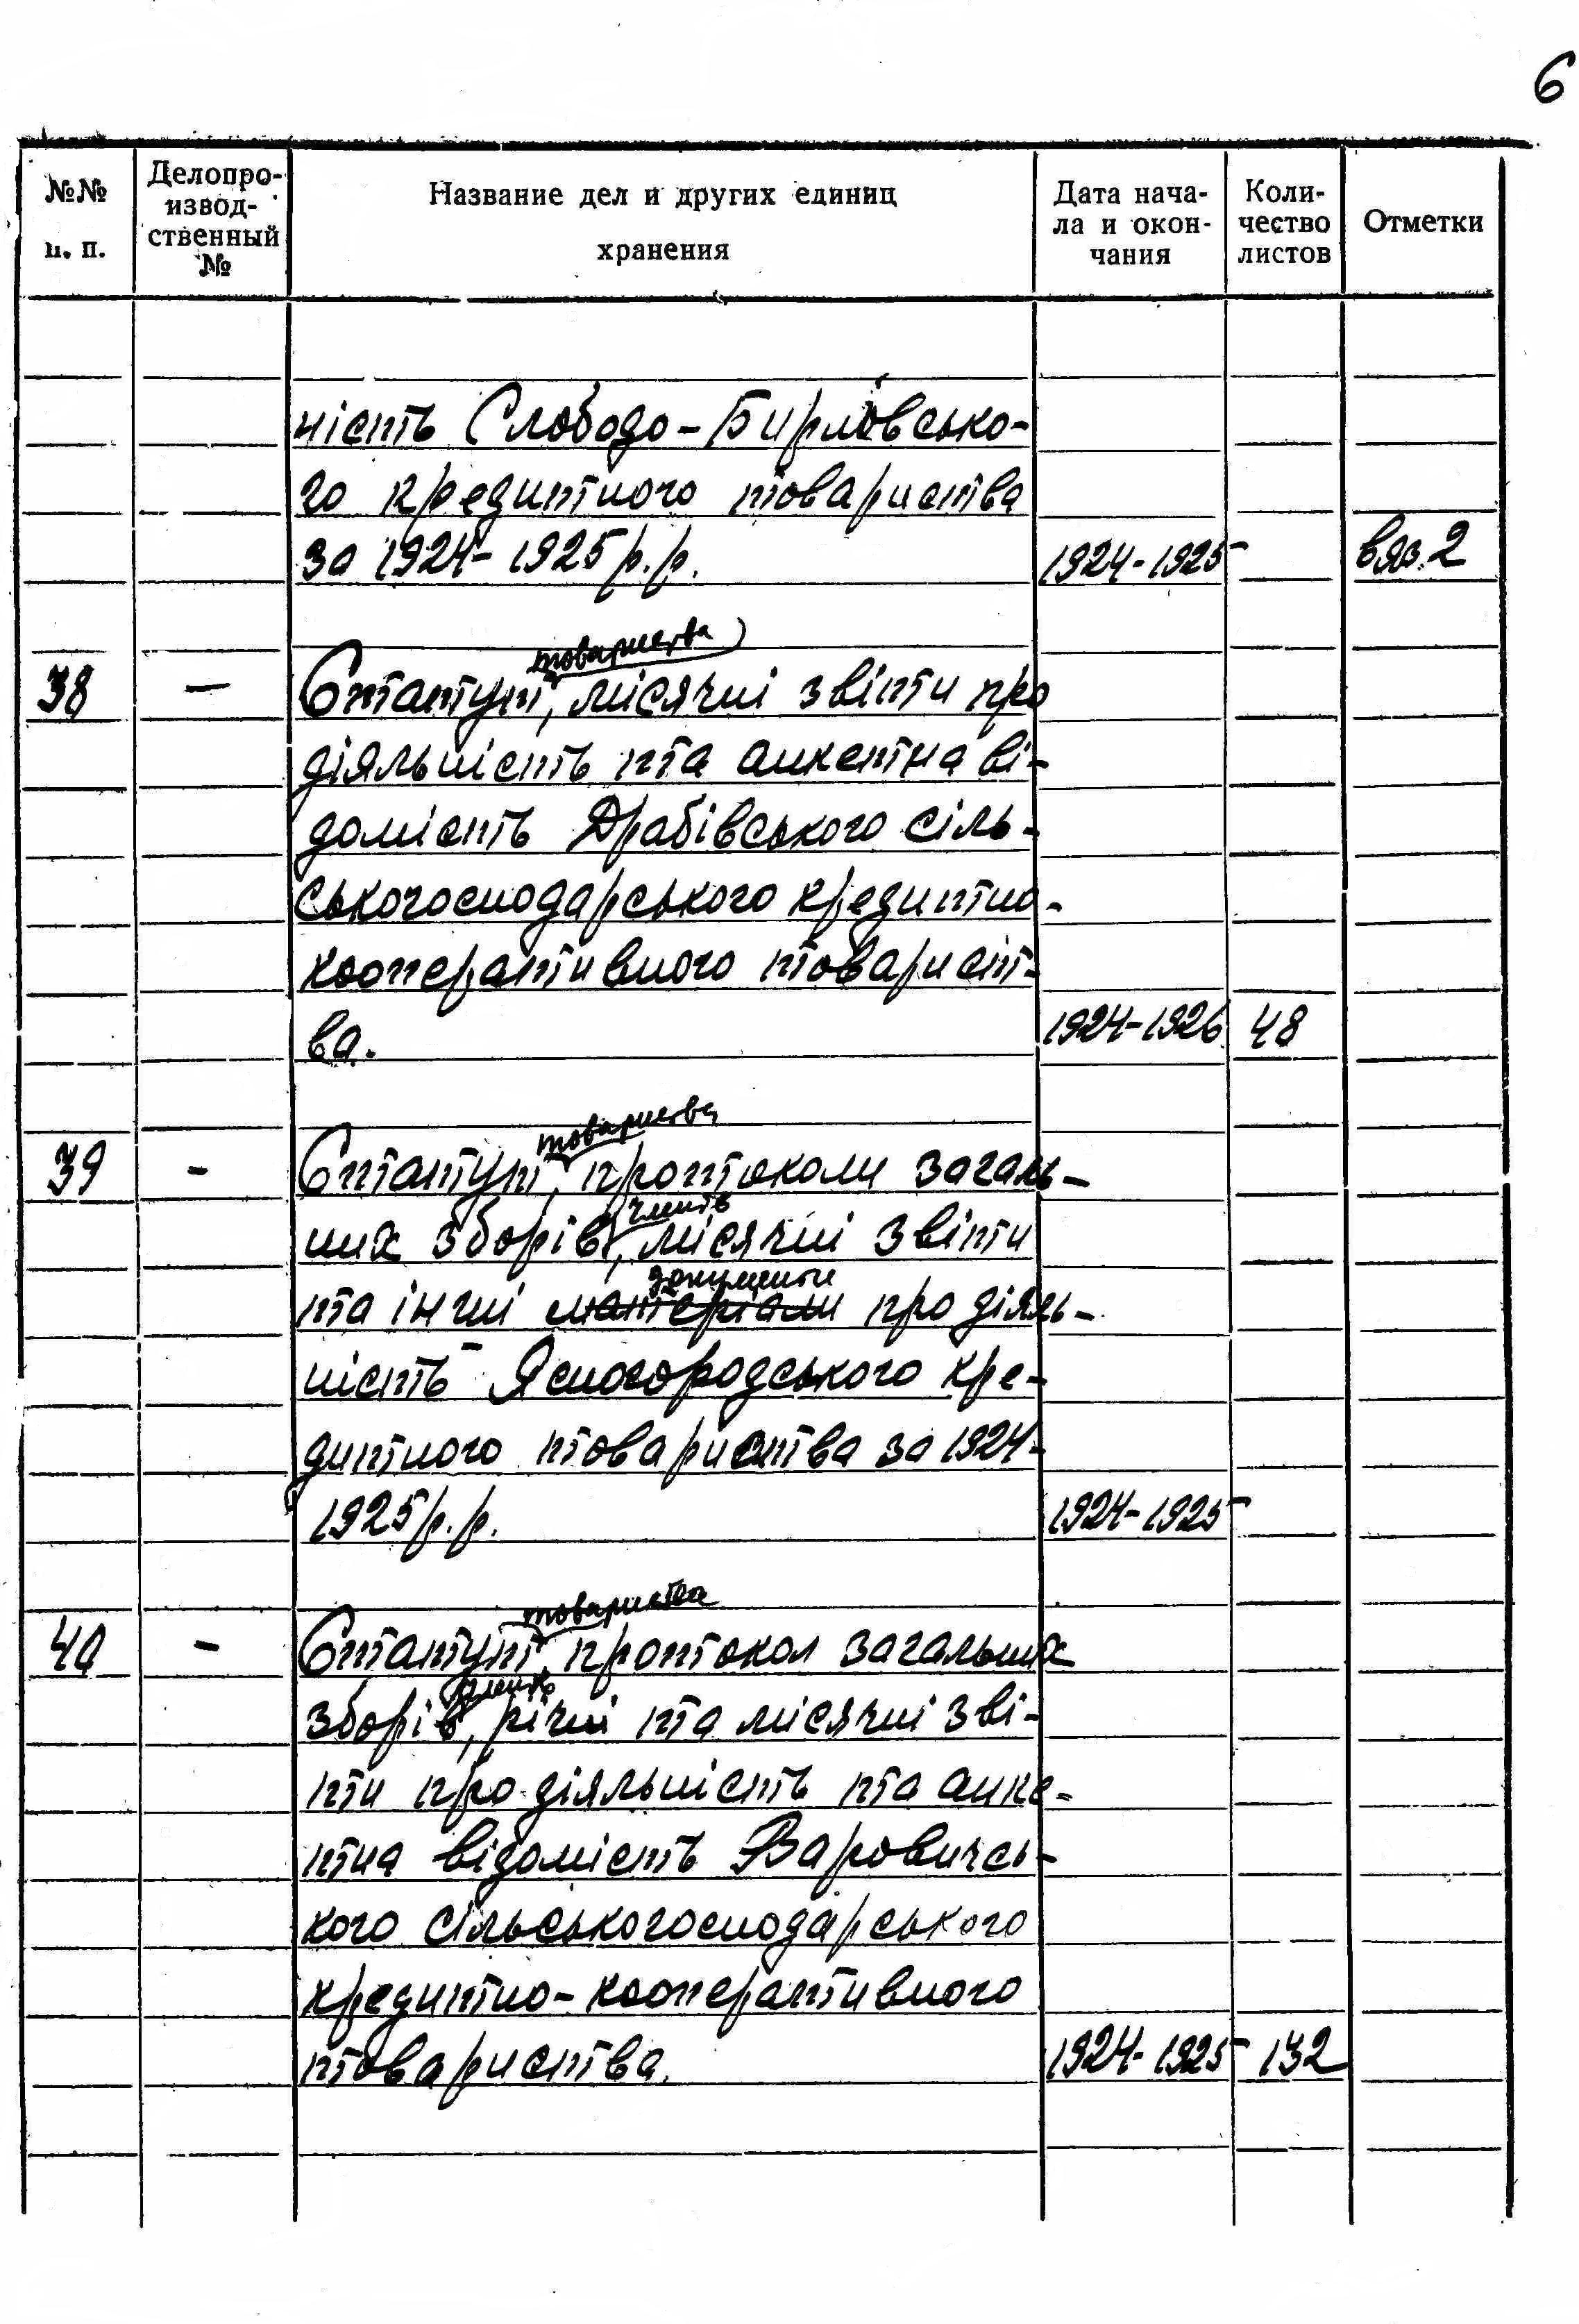 6
№№ п. п.
Делопро-
извод-
ственный
№
Название дел и других единиц
хранения
Дата нача-
ла и окон-
чания
Коли-
чество
листов
Отметки
ність Слободо-Бирловсько-
го кредитного товариства
за 1924-1925 р.р. 1924-1925 вяз.2
товариства
38 — Статут, місячні звіти про
діяльність та анкетна ві-
домість Драбівського сіль-
ськогосподарського кредитно-
кооперативного товарист-
ва. 1924-1926 48
товариства
39 - Статут, протоколи загаль-
членів
них зборів, місячні звіти
документи
та інші матеріали про діяль-
ність Ясногородського кре-
дитного товариства за 1924-
1925 р.р. 1924-1925
товариства
40 - Статут, протокол загальних
членів
зборів, річні та місячні зві-
ти про діяльність та анке-
тна відомість Варовичсь-
кого сільськогосподарського
кредитно-кооперативного
товариства. 1924-1925 132